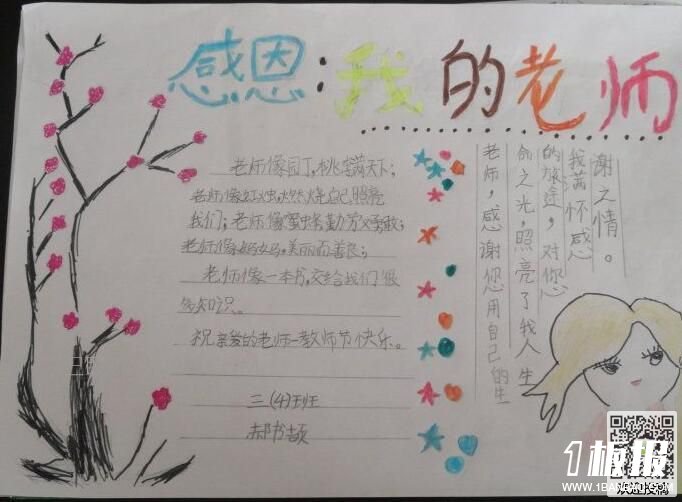 感恩:我的老师
老师像园丁,桃李满天下;
老师像红烛,燃烧自己照亮
我们;老师像蜜蜂勤劳又勇敢;
老师像妈妈,美丽而善良;
老师像一本书,交给我们很
多知识。
祝亲爱的老师—教师节快乐。
三(4)班
郝书颉
老师,感谢您用自己的生
命之光,照亮了我人生
的旅途,对您
我满怀感
谢之情。
1板报
WWW.1BANBAO.COM